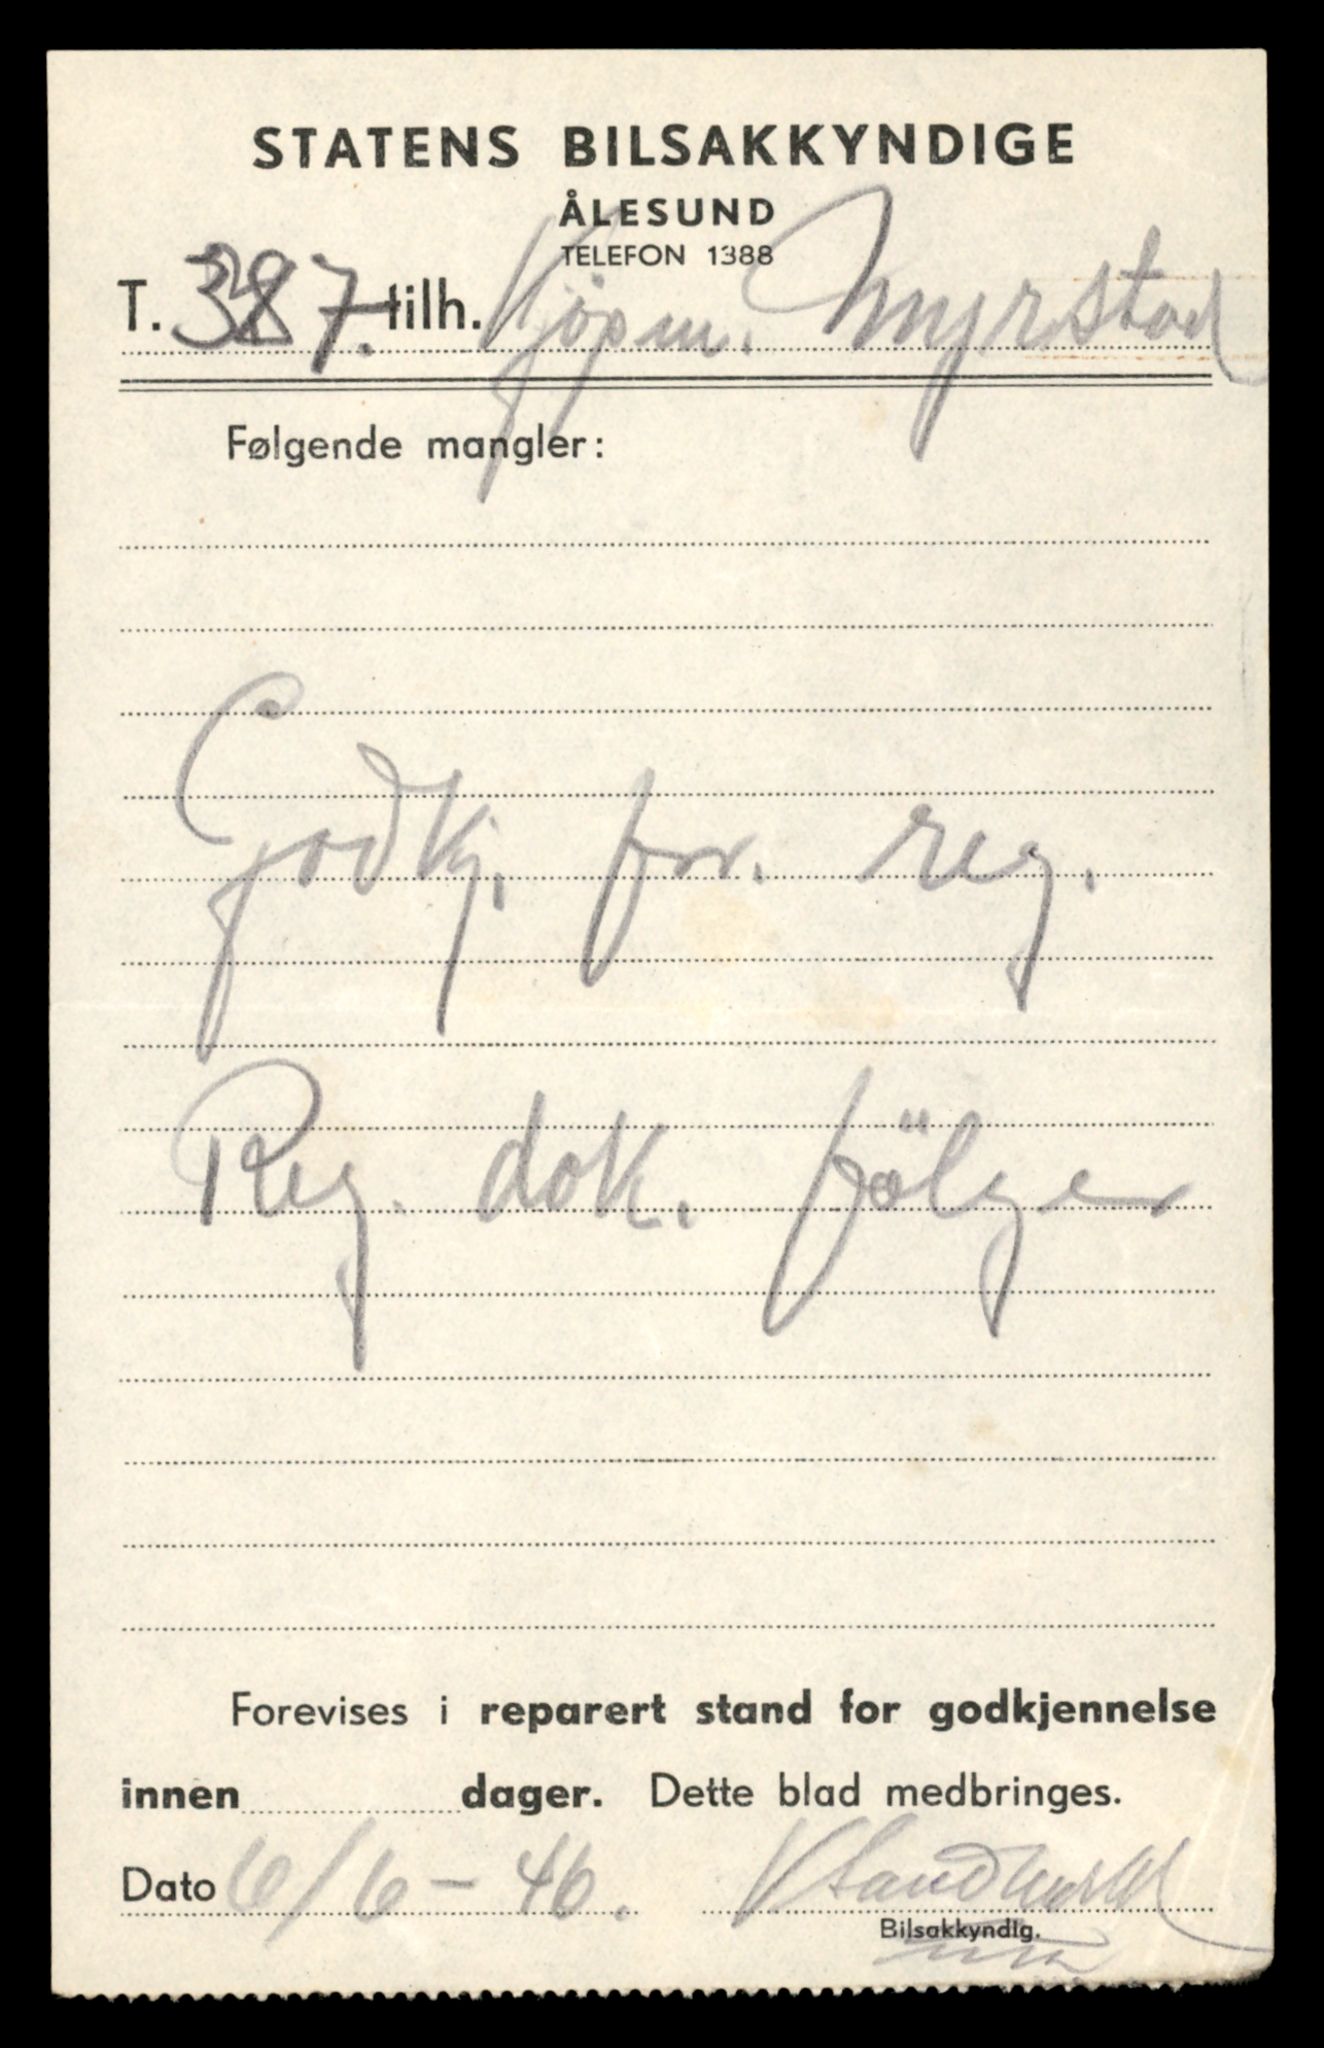 STATENS BILSAKKYNDIGE
ÅLESUND
TELEFON 1388
T. 387. tilh. Kjøpm. Myrstad
Følgende mangler:
Godkj. for. reg.
Reg. dok. følger
Forevises i reparert stand for godkjennelse
innen dager. Dette blad medbringes.
Dato 6/6-46.
Bilsakkyndig.